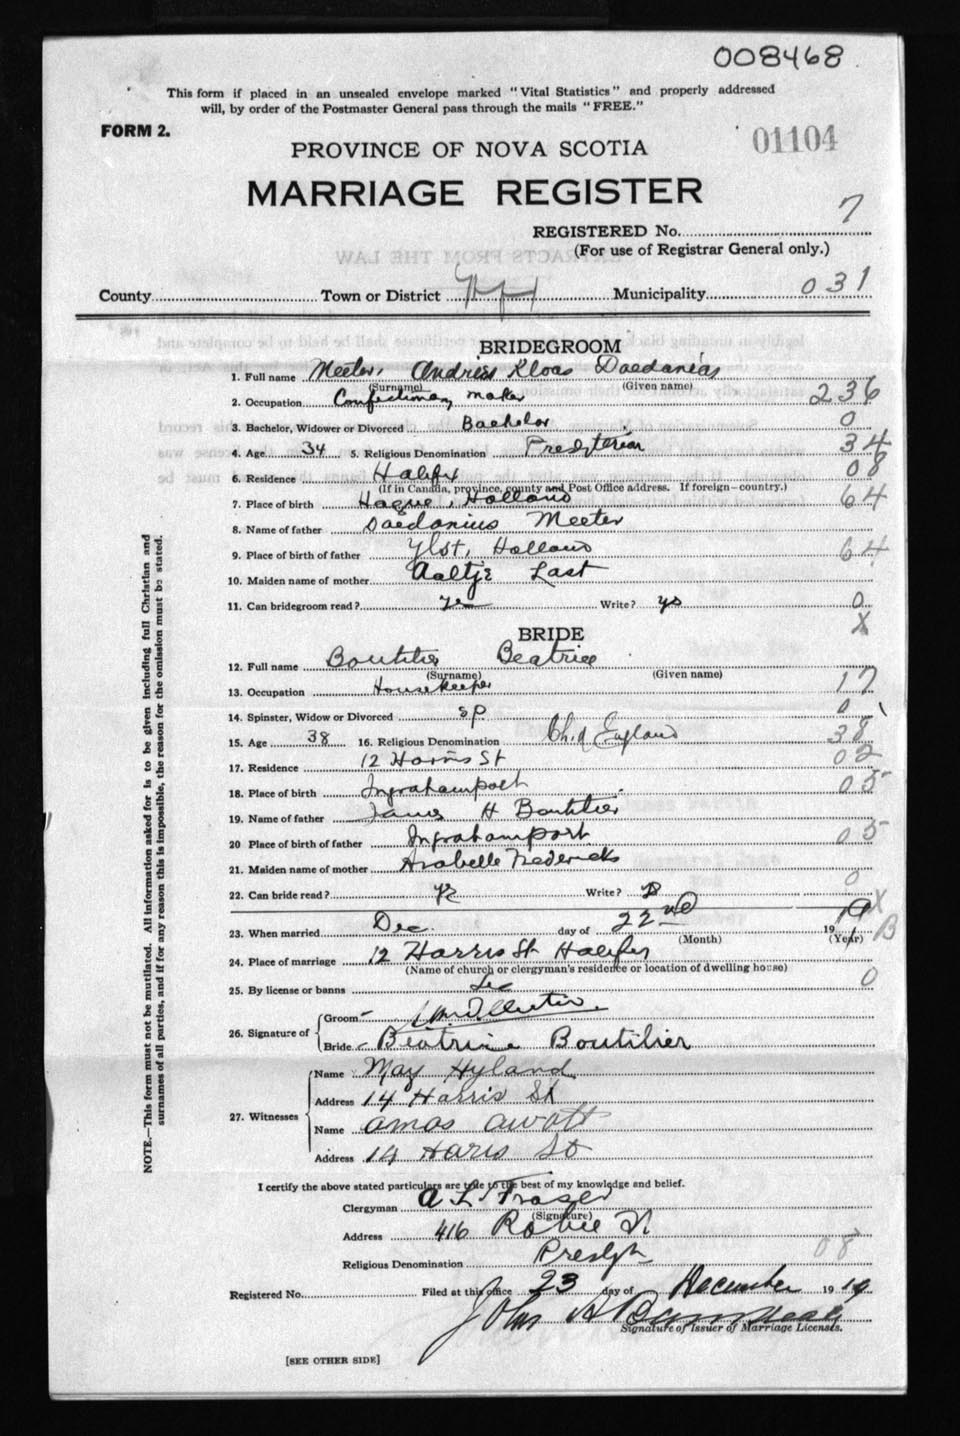 008468
This form if placed in an unsealed envelope marked "Vital Statistics" and properly addressed
will, by order of the Postmaster General pass through the mails "FREE."
FORM 2.
01104
PROVINCE OF NOVA SCOTIA
MARRIAGE REGISTER
REGISTERED No. 7
(For use of Registrar General only.)
County Town or District Municipality 031
BRIDEGROOM
1. Full name Meeter, Andries Klaas Daedanias
(Surname) (Given name)
2. Occupation Confectionery maker 236
3. Bachelor, Widower or Divorced Bachelor 0
4. Age 34 5. Religious Denomination Presbyterian 34
6. Residence Halifx 08
(If in Canada, province, county and Post Office address. If foreign-country.)
7. Place of birth Hague, Holland 64
8. Name of father Daedanius Meeter
9. Place of birth of father Ylst, Holland 64
10. Maiden name of mother Aaltje Last
11. Can bridegroom read? yes Write? ys 0
X
BRIDE
12. Full name Boutilier Beatrice
(Surname) (Given name)
13. Occupation Housekeeper 17
14. Spinster, Widow or Divorced sp 0
15. Age 38 16. Religious Denomination Ch. of England 38
17. Residence 12 Harris St 02
18. Place of birth Ingrahamport 05
19. Name of father James H Boutilier
20 Place of birth of father Ingrahamport 05
21. Maiden name of mother Arabelle Fredericks
22. Can bride read? Write? 0
X
23. When married Dec. day of 22nd 1919 B
(Month) (Year)
24. Place of marriage 12 Harris St Halifax
(Name of church or clergyman's residence or location of dwelling house)
25. By license or banns Lic 0
26. Signature of Groom
Bride Beatrice Boutilier
27. Witnesses
Name May Hyland
Address 14 Harris St
Name Amos
Address 14 Haris St
I certify the above stated particulars are true to the best of my knowledge and belief.
Clergyman A L Fraser
(Signature)
Address 416 Robie St
Religious Denomination Presbyn 08
Registered No. Filed at this office 23 day of December 1919
John A
Signature of Issuer of Marriage Licenses.
[SEE OTHER SIDE]
NOTE.—This form must not be mutilated. All information asked for is to be given including full Christian and
surnames of all parties, and if for any reason this is impossible, the reason for the omission must be stated.